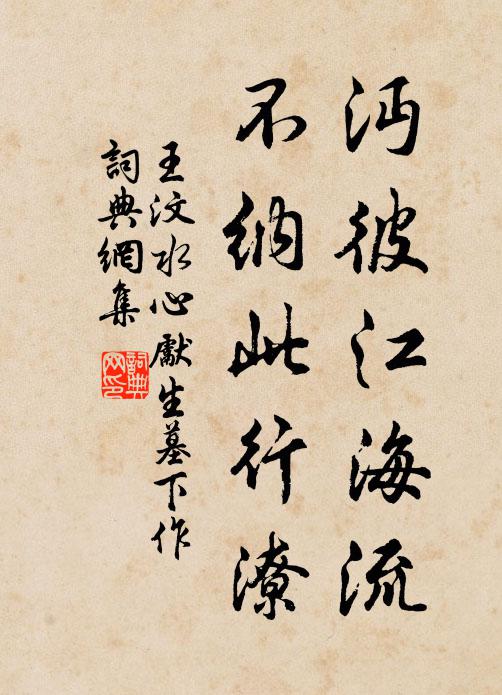 沔彼江海流
不納此行潦
王汶水心獻生墓下作
詞典網集
詞典
网印